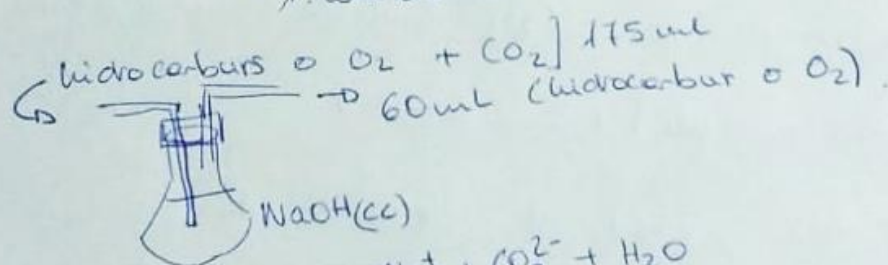 hidrocarburs o O₂ + CO₂] 175 ml
→ 60 mL (hidrocarbur o O₂).
NaOH(cc)
CO₃²⁻ + H₂O